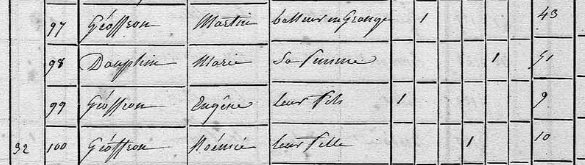 97 Géoffron Martin batteur en Grange 1 43
98 Dauphin Marie Sa femme 1 51
99 Géoffron Eugène leur fils 1 9
32 100 Géoffron Noémie leur fille 1 10